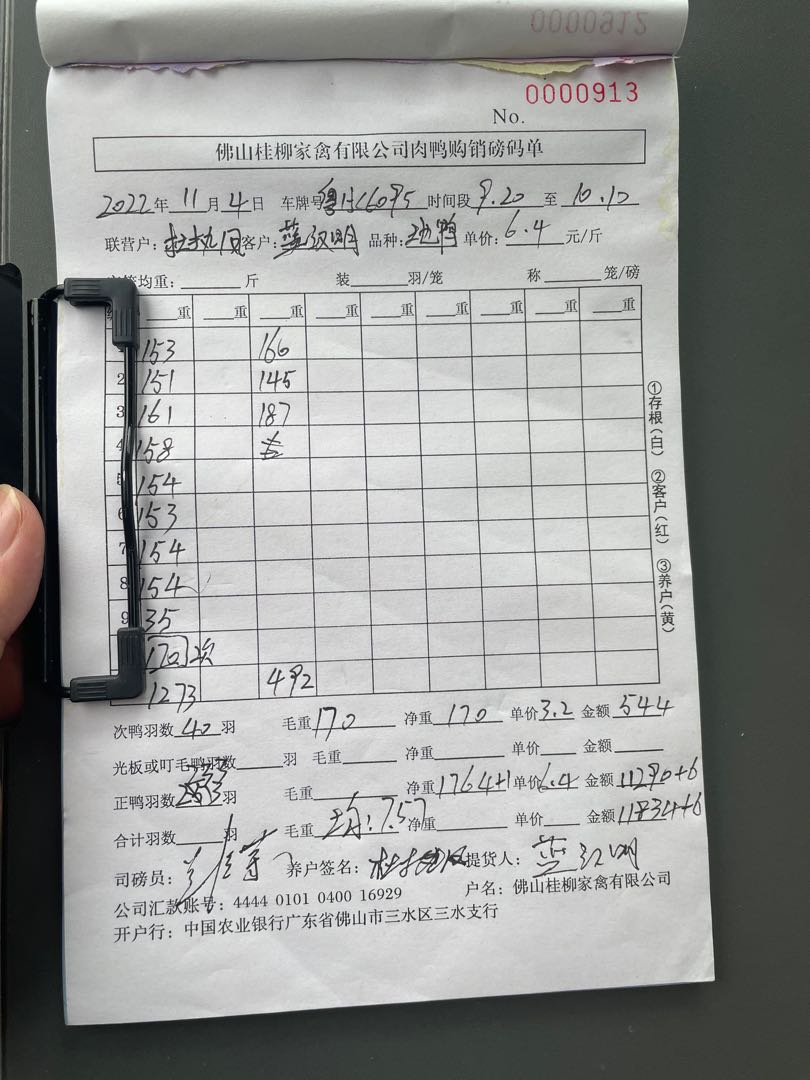 0000912
0000913
No.
佛山桂柳家禽有限公司肉鸭购销磅码单
2022年 11月 4日 车牌号 时间段 9.20 至 10.10
联营户： 客户：蓝汉明 品种： 鸭 单价：6.4 元/斤
均重： 斤 装 羽/笼 称 笼/磅
重 重 重 重 重 重 重 重 重
153 166
2 151 145
3 161 187
4 158
5 154
6 153
7 154
8 154
9 35
170 次
1273 492
次鸭羽数 40 羽 毛重 170 净重 170 单价 3.2 金额 544
光板或叮毛鸭羽数 羽 毛重 净重 单价 金额
正鸭羽数 羽 毛重 净重 1764+1 单价 6.4 金额 11290+6
合计羽数 羽 毛重 均：7.57 净重 单价 金额 11834+6
司磅员： 养户签名： 提货人：蓝汉明
公司汇款账号：4444 0101 0400 16929 户名：佛山桂柳家禽有限公司
开户行：中国农业银行广东省佛山市三水区三水支行
①存根（白） ②客户（红） ③养户（黄）